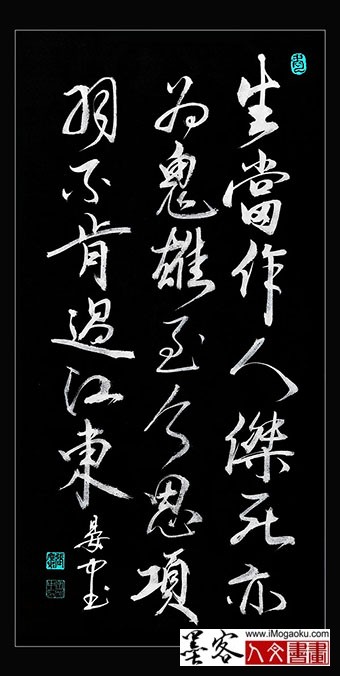 生當作人傑死亦
為鬼雄至今思項
羽不肯過江東
晏中书
www.iMogaoku.com
墨客
人文書畫